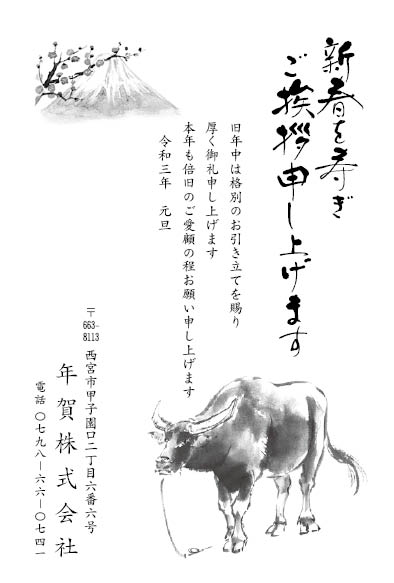 新春を寿ぎ
ご挨拶申し上げます
旧年中は格別のお引き立てを賜り
厚く御礼申し上げます
本年も倍旧のご愛顧の程お願い申し上げます
令和三年　元旦
〒663-8113
西宮市甲子園口二丁目六番六号
年賀株式会社
電話 〇七九八―六六―〇七四一